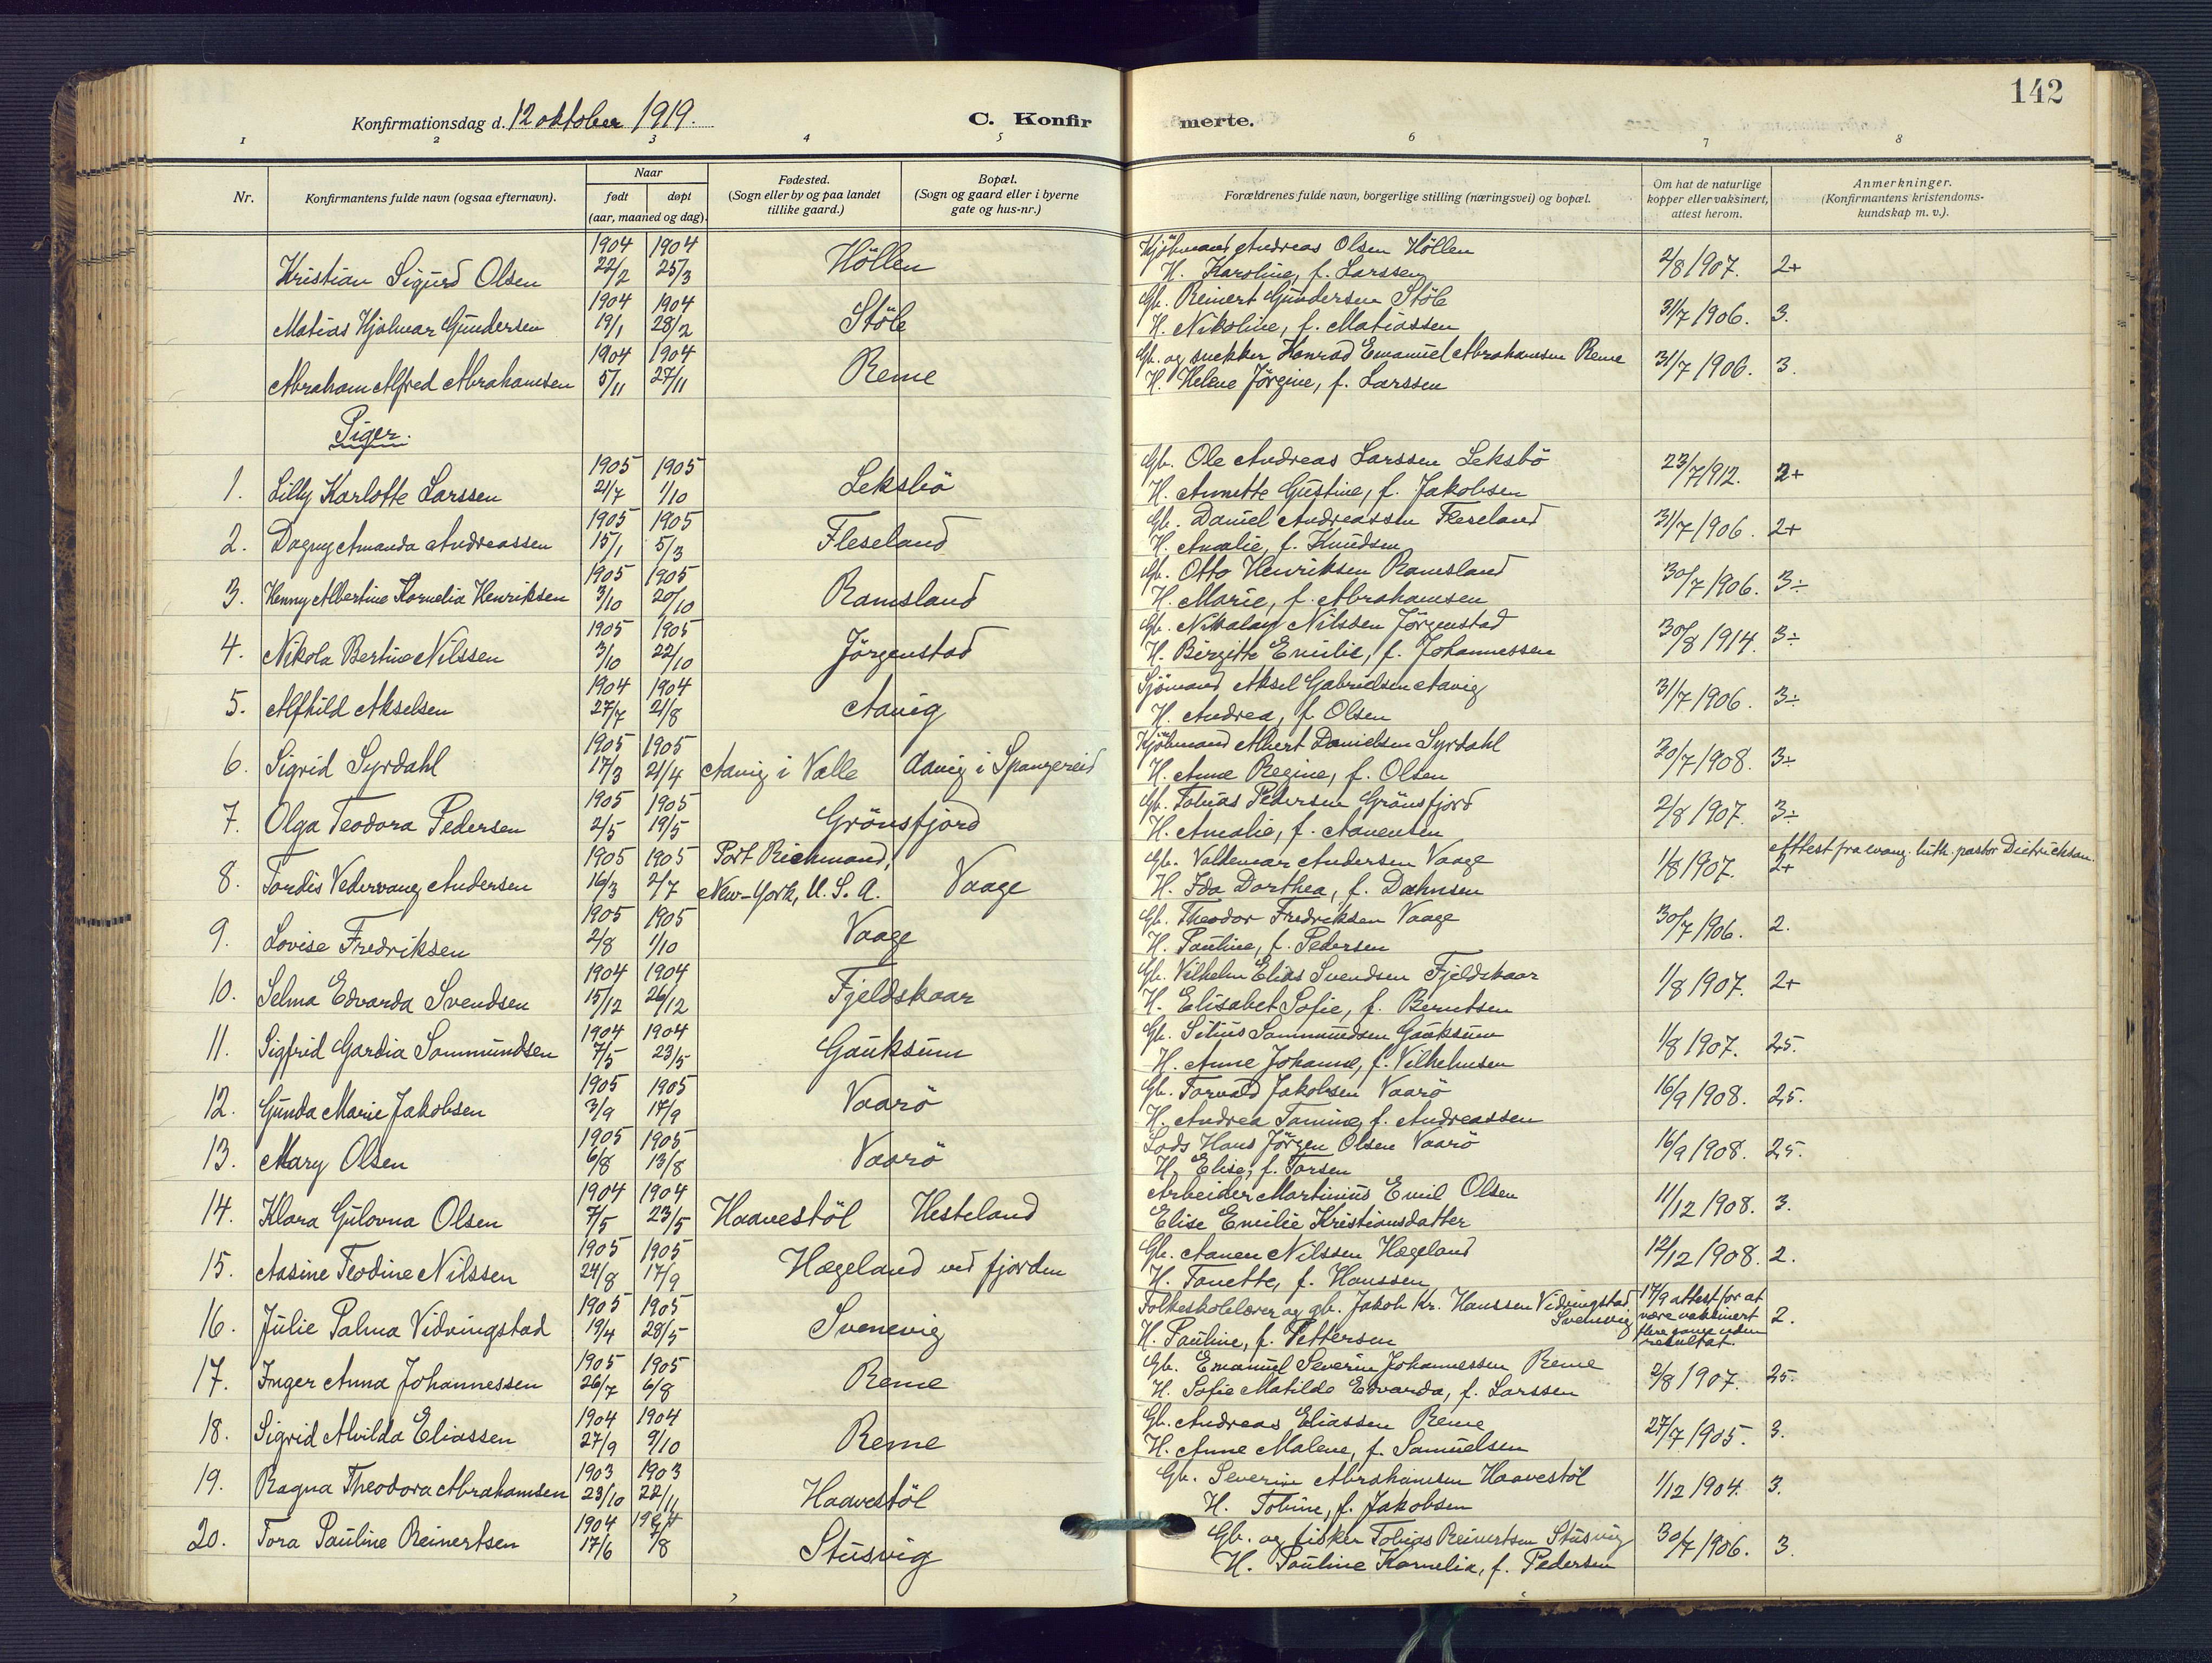 142
Konfirmationsdag d. 12 oktober 1919.
C. Konfirmerte.
1 2 3 4 5 6 7 8
Nr. Konfirmantens fulde navn (ogsaa efternavn). Naar født døpt (aar, maaned og dag). Fødested. (Sogn eller by og paa landet tillike gaard.) Bopæl. (Sogn og gaard eller i byerne gate og hus-nr.) Forældrenes fulde navn, borgerlige stilling (næringsvei) og bopæl. Om hat de naturlige kopper eller vaksinert, attest herom. Anmerkninger. (Konfirmantens kristendoms-kundskap m. v.).
1904 1904 Kjøbmand Andreas Olsen Höllen
Kristian Sigurd Olsen 22/2 25/3 Höllen H. Karoline, f. Larssen 2/8 1907. 2+
1904 1904 Gb. Reinert Gundersen Stöle
Matias Hjalmar Gundersen 19/1 28/2 Stöle H. Nikoline, f. Matiassen 31/7 1906. 3.
1904 1904 Gb. og snekker Konrad Emanuel Abrahamsen Reme
Abraham Alfred Abrahamsen 5/11 27/11 Reme H. Helene Jörgine, f. Larssen 31/7 1906. 3.
Piger.
1905 1905 Gb. Ole Andreas Larssen Leksbö
1. Lilly Karlotte Larssen 21/7 1/10 Leksbö H. Annette Gustine, f. Jakobsen 23/7 1912. 2+
1905 1905 Gb. Daniel Andreassen Fleseland
2. Dagny Amanda Andreassen 15/1 5/3 Fleseland H. Amalie, f. Knudsen 31/7 1906. 2+
1905 1905 Gb. Otto Henriksen Ramsland
3. Henny Albertine Kornelia Henriksen 3/10 20/10 Ramsland H. Marie, f. Abrahamsen 30/7 1906. 3÷
1905 1905 Gb. Nikolay Nilssen Jörgenstad
4. Nikola Bertine Nilssen 3/10 22/10 Jörgenstad H. Birgitte Emilie, f. Johannessen 30/8 1914. 3÷
1904 1904 Sjömand Aksel Gabrielsen Aavig
5. Alfhild Akselsen 27/7 21/8 Aavig H. Andrea, f. Olsen 31/7 1906. 3÷
1905 1905 Kjöbmand Albert Danielsen Syrdahl
6. Sigrid Syrdahl 17/3 21/4 Aavig i Valle Aavig i Spangereid H. Anne Regine, f. Olsen 30/7 1908. 3÷
1905 1905 Gb. Tobias Pedersen Grönsfjord
7. Olga Teodora Pedersen 2/5 19/5 Grönsfjord H. Amalie, f. Aanensen 2/8 1907. 3÷
1905 1905 Port Richmond, Gb. Valdemar Andersen Vaage Attest fra evang. luth. pastor Dietrichson.
8. Tordis Vedervang Andersen 16/3 2/7 New-York, U. S. A. Vaage H. Ida Dorthea, f. Dahnsen 1/8 1907. 2+
1905 1905 Gb. Theodor Fredriksen Vaage
9. Lovise Fredriksen 2/8 1/10 Vaage H. Pauline, f. Pedersen 30/7 1906. 2.
1904 1904 Gb. Vilhelm Elias Svendsen Fjeldskaar
10. Selma Edvarda Svendsen 15/12 26/12 Fjeldskaar H. Elisabet Sofie, f. Berntsen 1/8 1907. 2+
1904 1904 Gb. Sitius Sammundsen Gauksum
11. Sigfrid Gardia Sammundsen 7/5 23/5 Gauksum H. Anne Johanne, f. Vilhelmsen 1/8 1907. 2,5.
1905 1905 Gb. Torvald Jakobsen Vaarö
12. Gunda Marie Jakobsen 3/9 17/9 Vaarö H. Andrea Tomine, f. Andreassen 16/9 1908. 2,5.
1905 1905 Lods Hans Jörgen Olsen Vaarö
13. Mary Olsen 6/8 13/8 Vaarö H. Elise, f. Torsen 16/9 1908. 2,5.
1904 1904 Arbeider Martinius Emil Olsen
14. Klara Gulovna Olsen 7/5 23/5 Haavestöl Hesteland Elise Emilie Kristiansdatter 11/12 1908. 3.
1905 1905 Gb. Aanen Nilssen Hægeland
15. Aasine Teodine Nilssen 24/8 17/9 Hægeland ved fjorden H. Tonette, f. Hanssen 12/12 1908. 2.
1905 1905 Folkeskolelærer og gb. Jakob Kr. Hanssen Vidringstad, Svenevig 17/9 attest for at være vaksinert flere gange uden resultat.
16. Julie Palma Vidringstad 19/4 28/5 Svenevig H. Pauline, f. Pettersen 2.
1905 1905 Gb. Emanuel Severin Johannessen Reme
17. Inger Anna Johannessen 26/7 6/8 Reme H. Sofie Matilde Edvarda, f. Larssen 2/8 1907. 2,5.
1904 1904 Gb. Andreas Eliassen Reme
18. Sigrid Alvilda Eliassen 27/9 9/10 Reme H. Anne Malene, f. Samuelsen 27/7 1905. 3.
1903 1903 Gb. Severin Abrahamsen Haavestöl
19. Ragna Theodora Abrahamsen 23/10 22/11 Haavestöl H. Tobine, f. Jakobsen 1/12 1904. 3.
1904 1904 Gb. og fisker Tobias Reinertsen Stusvig
20. Tora Pauline Reinertsen 17/6 7/8 Stusvig H. Pauline Kornelia, f. Pedersen 30/7 1906. 3.